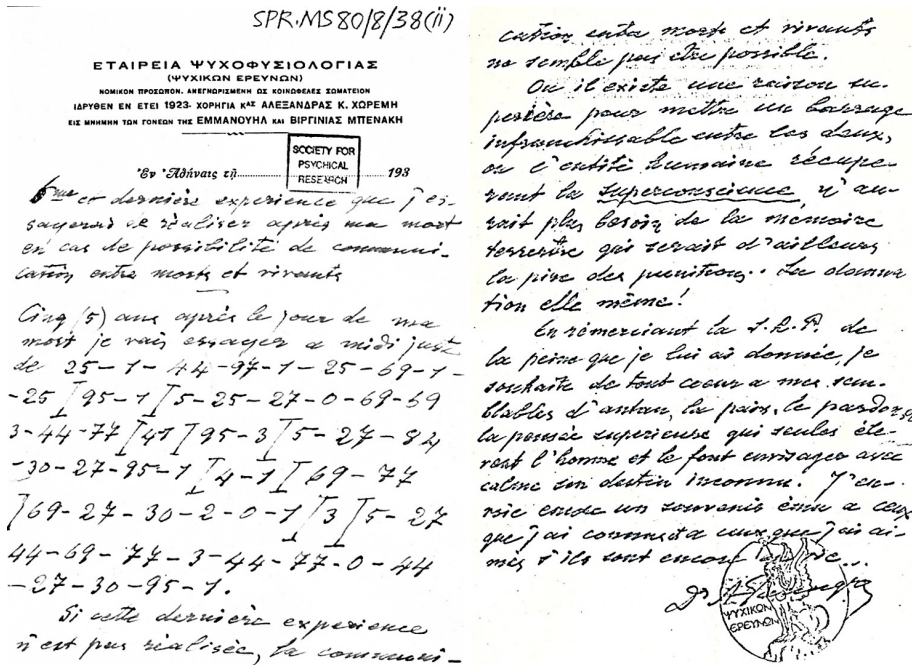 SPR.MS 80/8/38(ii)
ΕΤΑΙΡΕΙΑ ΨΥΧΟΦΥΣΙΟΛΟΓΙΑΣ
(ΨΥΧΙΚΩΝ ΕΡΕΥΝΩΝ)
ΝΟΜΙΚΟΝ ΠΡΟΣΩΠΟΝ. ΑΝΕΓΝΩΡΙΣΜΕΝΗ ΩΣ ΚΟΙΝΩΦΕΛΕΣ ΣΩΜΑΤΕΙΟΝ
ΙΔΡΥΘΕΝ ΕΝ ΕΤΕΙ 1923· ΧΟΡΗΓΙΑ Κ<sup>ΑΣ</sup> ΑΛΕΞΑΝΔΡΑΣ Κ. ΧΩΡΕΜΗ
ΕΙΣ ΜΝΗΜΗΝ ΤΩΝ ΓΟΝΕΩΝ ΤΗΣ ΕΜΜΑΝΟΥΗΛ ΚΑΙ ΒΙΡΓΙΝΙΑΣ ΜΠΕΝΑΚΗ
SOCIETY FOR
PSYCHICAL
RESEARCH
Ἐν Ἀθήναις τῇ 193
5me et dernière experience que j'es-
sayerai de réaliser après ma mort
en cas de possibilité de communi-
cation entre morts et vivants
Cinq (5) ans après le jour de ma
mort je vais essayer a midi juste
de 25-1-44-97-1-25-69-1-
-25 I 95-1 I 5-25-27-0-69-69
3-44-77 I 41 I 95-3 I 5-27-84
-30-27-95-1 I 4-1 I 69-77
I 69-27-30-2-0-1 I 3 I 5-27
44-69-77-3-44-77-0-44
-27-30-95-1.
Si cette dernière experience
n'est pas réalisée, la communi-
cation entre morts et vivants
ne semble pas être possible.
Ou il existe une raison su-
périère pour mettre un barrage
infranchissable entre les deux,
ou l'entité humaine récupe-
rant la superconscience, n'au-
rait plus besoin de la mémoire
terrestre qui serait d'ailleurs
la pire des punitions.. La damna-
tion elle même!
En rémerciant la S.L.P. de
la peine que je lui ai donnée, je
souhaite de tout coeur a mes sem-
blables d'antan, la paix, le pardon,
la pensée superieuse qui seules éle-
vent l'homme et le font envisager avec
calme son destin inconnu. J'en-
voie encore un souvenir ému a ceux
que j'ai connus et a ceux que j'ai ai-
més s'ils sont encore
Dr
ΨΥΧΙΚΩΝ
ΕΡΕΥΝΩΝ